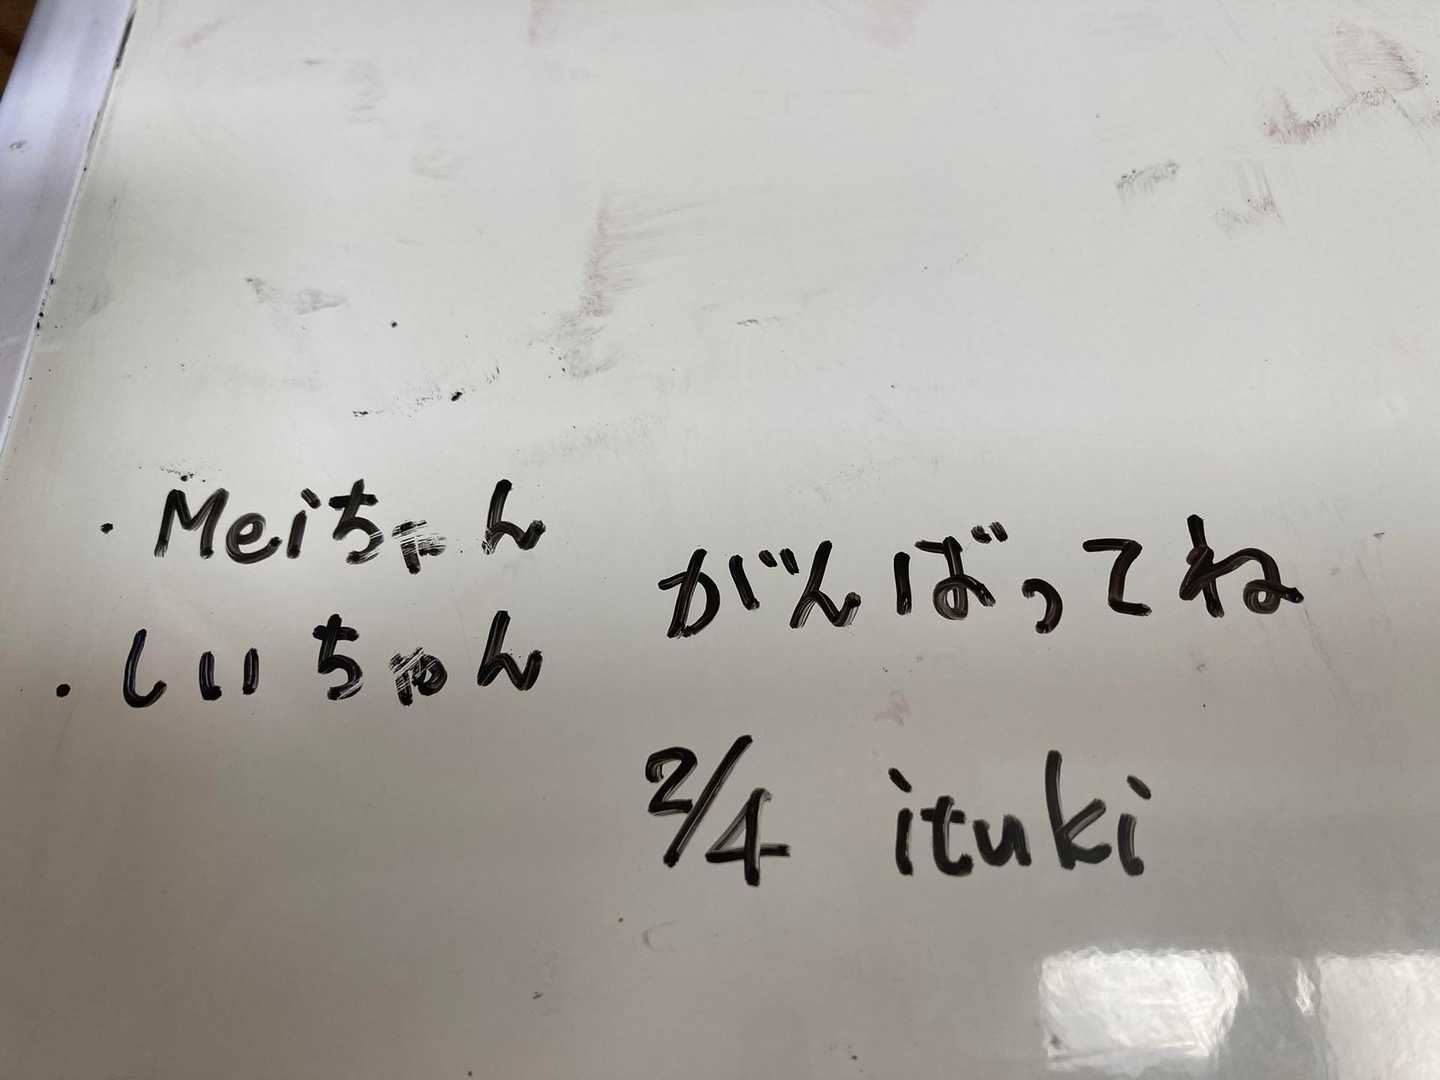 ・Meiちゃん
・しいちゃん
がんばってね
2/4 ituki